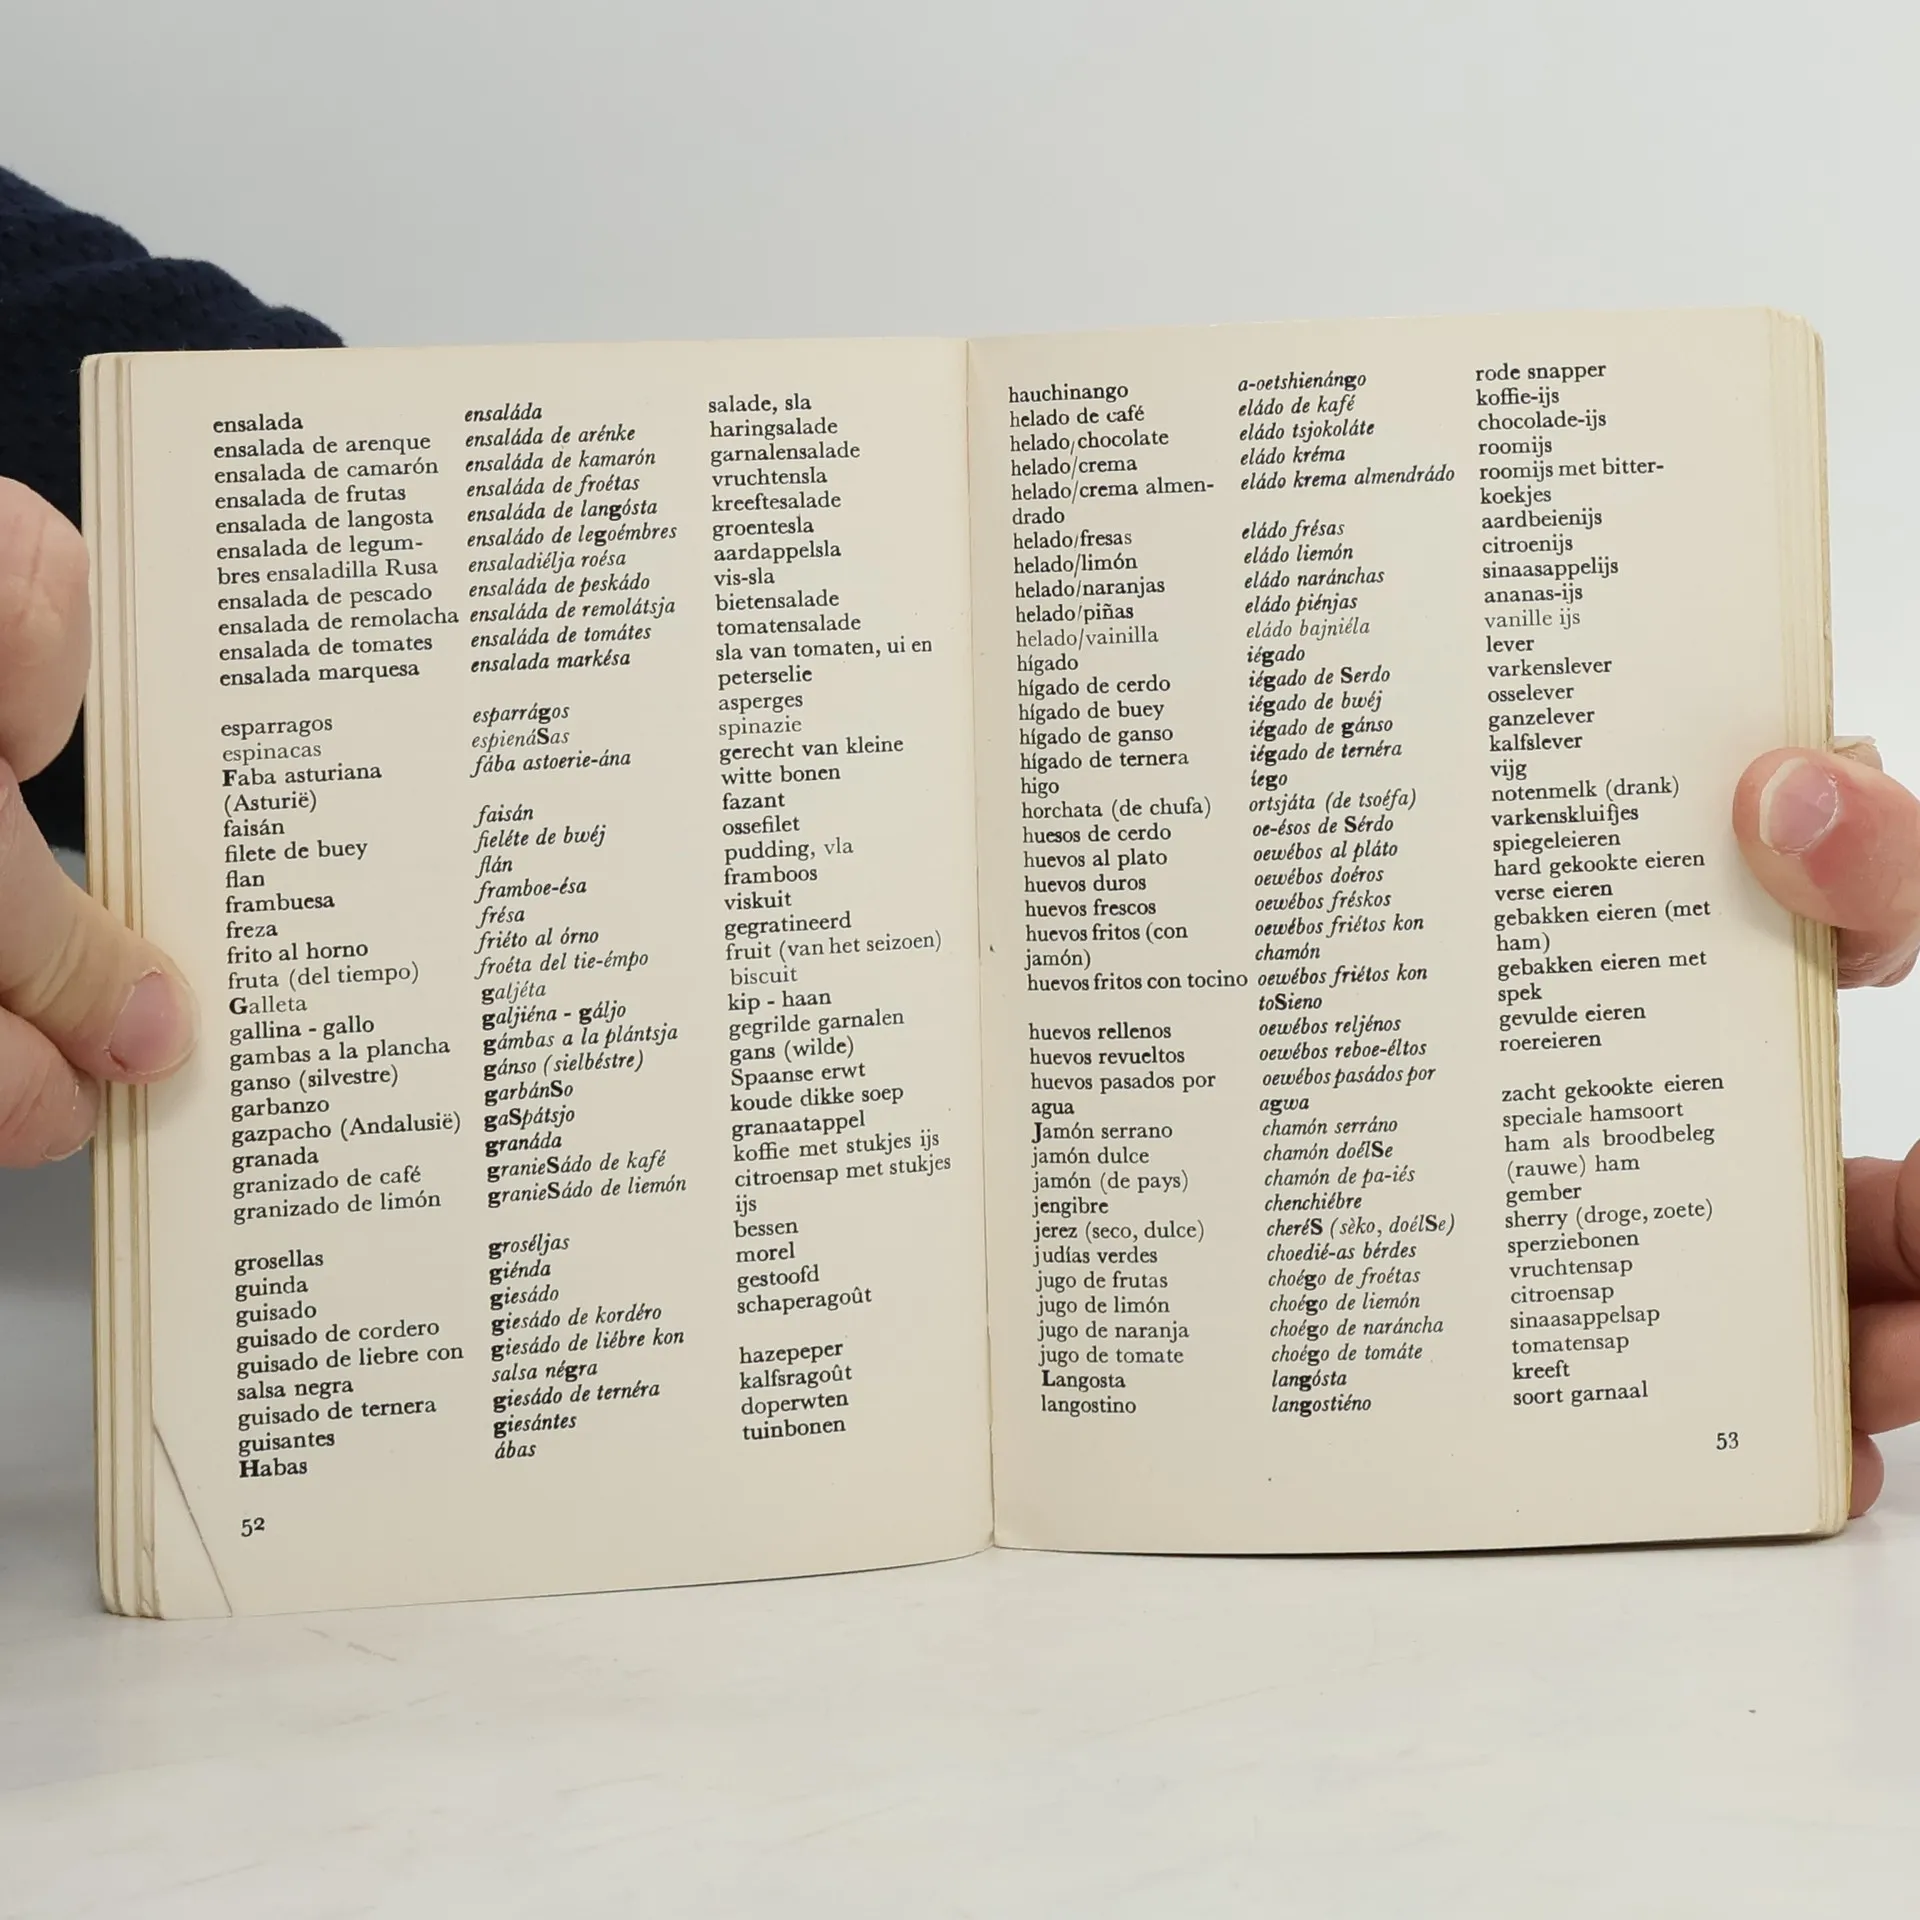 ensalada ensaláda salade, sla
ensalada de arenque ensaláda de arénke haringsalade
ensalada de camarón ensaláda de kamarón garnalensalade
ensalada de frutas ensaláda de froétas vruchtensla
ensalada de langosta ensaláda de langósta kreeftesalade
ensalada de legum- ensaládo de legoémbres groentesla
bres ensaladilla Rusa ensaladiélja roésa aardappelsla
ensalada de pescado ensaláda de peskádo vis-sla
ensalada de remolacha ensaláda de remolátsja bietensalade
ensalada de tomates ensaláda de tomátes tomatensalade
ensalada marquesa ensalada markésa sla van tomaten, ui en
peterselie
esparragos esparrágos asperges
espinacas espienáSas spinazie
Faba asturiana fába astoerie-ána gerecht van kleine
(Asturië) witte bonen
faisán faisán fazant
filete de buey fieléte de bwéj ossefilet
flan flán pudding, vla
frambuesa framboe-ésa framboos
freza frésa viskuit
frito al horno friéto al órno gegratineerd
fruta (del tiempo) froéta del tie-émpo fruit (van het seizoen)
Galleta galjéta biscuit
gallina - gallo galjiéna - gáljo kip - haan
gambas a la plancha gámbas a la plántsja gegrilde garnalen
ganso (silvestre) gánso (sielbéstre) gans (wilde)
garbanzo garbánSo Spaanse erwt
gazpacho (Andalusië) gaSpátsjo koude dikke soep
granada granáda granaatappel
granizado de café granieSádo de kafé koffie met stukjes ijs
granizado de limón granieSádo de liemón citroensap met stukjes
ijs
grosellas groséljas bessen
guinda giénda morel
guisado giesádo gestoofd
guisado de cordero giesádo de kordéro schaperagoût
guisado de liebre con giesádo de liébre kon
salsa negra salsa négra hazepeper
guisado de ternera giesádo de ternéra kalfsragoût
guisantes giesántes doperwten
Habas ábas tuinbonen
52
hauchinango a-oetshienángo rode snapper
helado de café eládo de kafé koffie-ijs
helado/chocolate eládo tsjokoláte chocolade-ijs
helado/crema eládo kréma roomijs
helado/crema almen- eládo krema almendrádo roomijs met bitter-
drado koekjes
helado/fresas eládo frésas aardbeienijs
helado/limón eládo liemón citroenijs
helado/naranjas eládo naránchas sinaasappelijs
helado/piñas eládo piénjas ananas-ijs
helado/vainilla eládo bajniéla vanille ijs
hígado iégado lever
hígado de cerdo iégado de Serdo varkenslever
hígado de buey iégado de bwéj osselever
hígado de ganso iégado de gánso ganzelever
hígado de ternera iégado de ternéra kalfslever
higo íego vijg
horchata (de chufa) ortsjáta (de tsoéfa) notenmelk (drank)
huesos de cerdo oe-ésos de Sérdo varkenskluifjes
huevos al plato oewébos al pláto spiegeleieren
huevos duros oewébos doéros hard gekookte eieren
huevos frescos oewébos fréskos verse eieren
huevos fritos (con oewébos friétos kon gebakken eieren (met
jamón) chamón ham)
huevos fritos con tocino oewébos friétos kon gebakken eieren met
toSieno spek
huevos rellenos oewébos reljénos gevulde eieren
huevos revueltos oewébos reboe-éltos roereieren
huevos pasados por oewébos pasádos por
agua agwa zacht gekookte eieren
Jamón serrano chamón serráno speciale hamsoort
jamón dulce chamón doélSe ham als broodbeleg
jamón (de pays) chamón de pa-iés (rauwe) ham
jengibre chenchiébre gember
jerez (seco, dulce) cheréS (sèko, doélSe) sherry (droge, zoete)
judías verdes choedié-as bérdes sperziebonen
jugo de frutas choégo de froétas vruchtensap
jugo de limón choégo de liemón citroensap
jugo de naranja choégo de naráncha sinaasappelsap
jugo de tomate choégo de tomáte tomatensap
Langosta langósta kreeft
langostino langostiéno soort garnaal
53